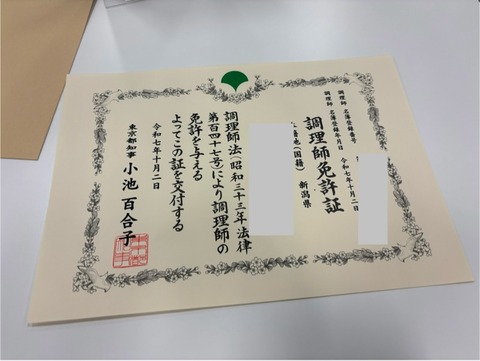 調理師名簿登録番号
調理師名簿登録年月日 令和七年十月二日
調理師免許証
本籍地(国籍) 新潟県
調理師法(昭和三十三年法律
第百四十七号)により調理師の
免許を与える
よってこの証を交付する
令和七年十月二日
東京都知事 小池百合子